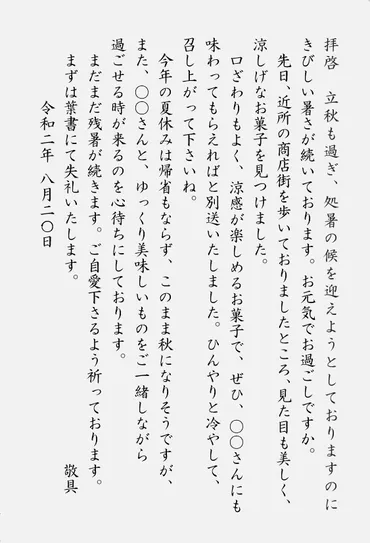 拝啓　立秋も過ぎ、処暑の候を迎えようとしておりますのに
きびしい暑さが続いております。お元気でお過ごしですか。
先日、近所の商店街を歩いておりましたところ、見た目も美しく、
涼しげなお菓子を見つけました。
口ざわりもよく、涼感が楽しめるお菓子で、ぜひ、〇〇さんにも
味わってもらえればと別送いたしました。ひんやりと冷やして、
召し上がって下さいね。
今年の夏休みは帰省もならず、このまま秋になりそうですが、
また、〇〇さんと、ゆっくり美味しいものをご一緒しながら
過ごせる時が来るのを心待ちにしております。
まだまだ残暑が続きます。ご自愛下さるよう祈っております。
まずは葉書にて失礼いたします。
敬具
令和二年　八月二〇日